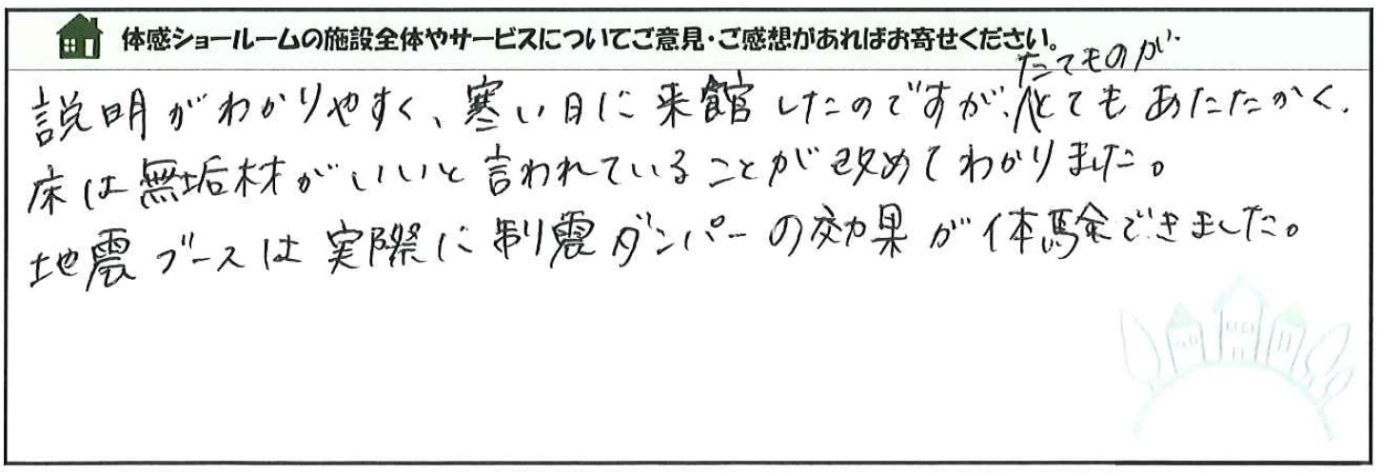 体感ショールームの施設全体やサービスについてご意見・ご感想があればお寄せください。
たてものが
説明がわかりやすく、寒い日に来館したのですが、とてもあたたかく、
床は無垢材がいいと言われていることが改めてわかりました。
地震ブースは実際に制震ダンパーの効果が体験できました。